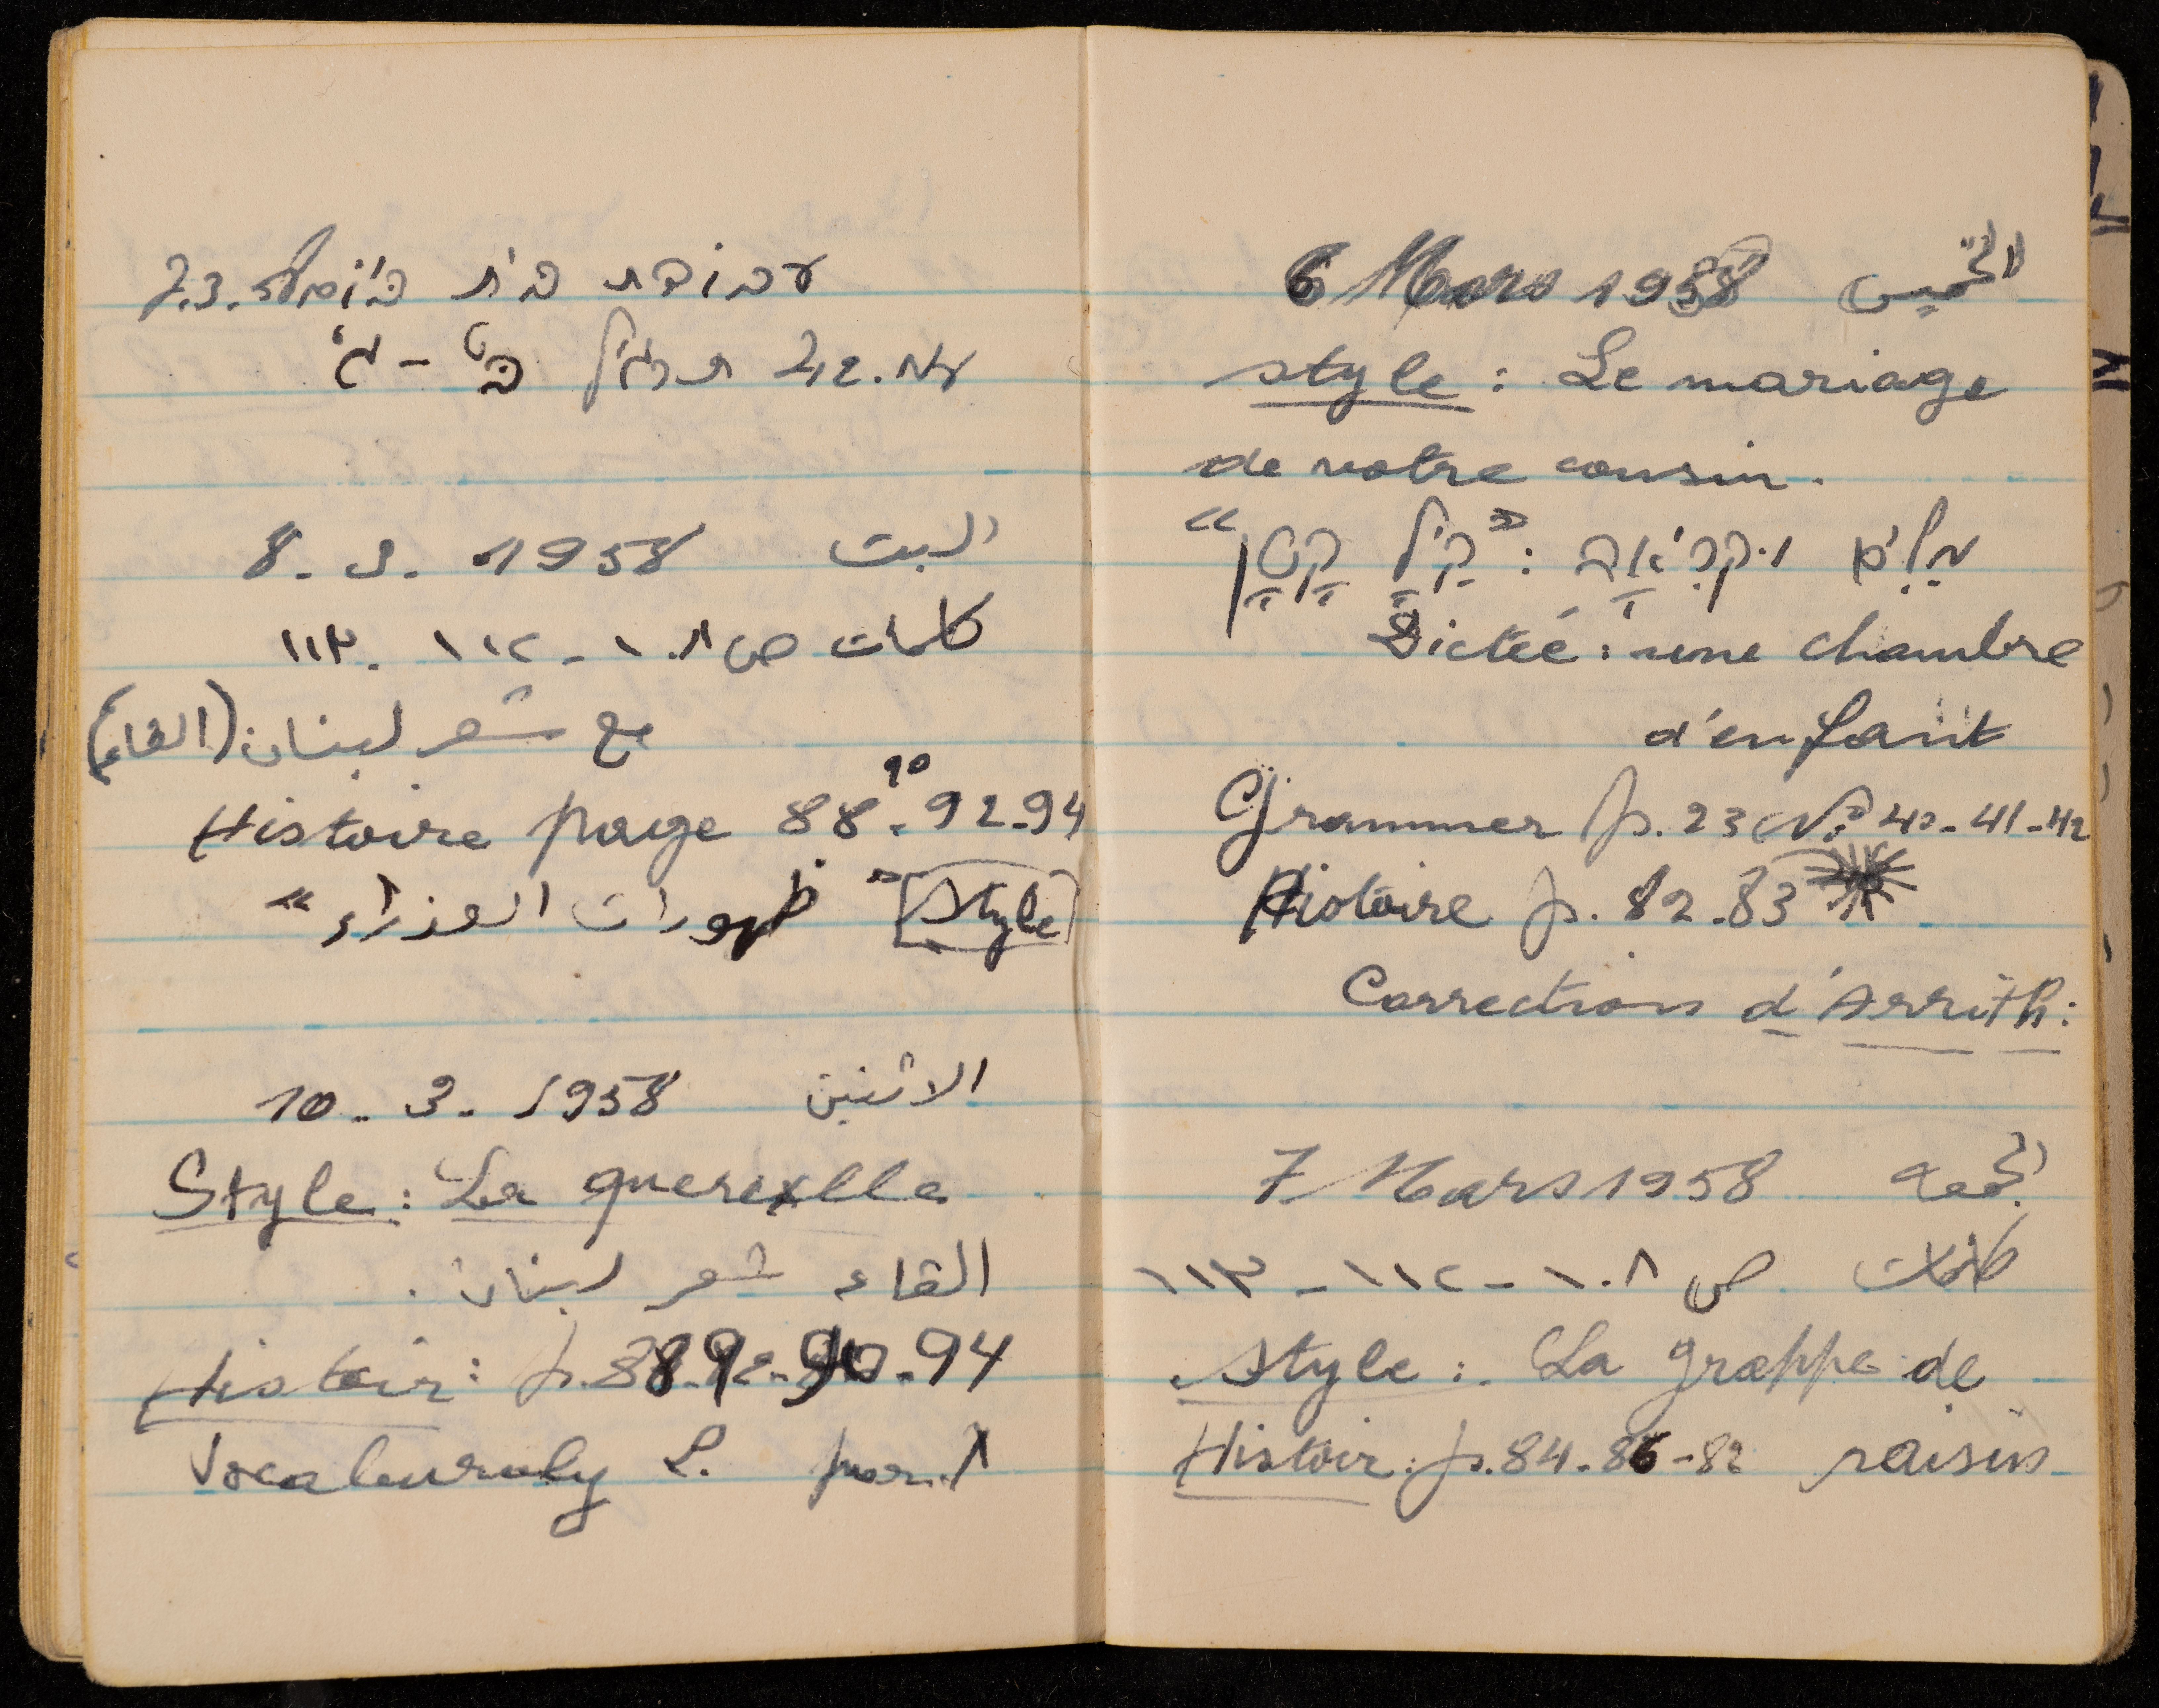 6 Mars 1958 الخميس
style : Le mariage
de notre cousin.
Dictée : une chambre
d'enfant
Grammer p. 23 Nº 40-41-42
Histoire p. 82-83
Correction d'Arrith:
7 Mars 1958 الجمعة
كلمات ص ١٠٨ - ١١٢ - ١١٣
style : La grappe de
raisin
Histoir : p. 84-86-82
עבודת בית
8. 3. 1958 السبت
كلمات ص ١٠٨ - ١١٢ - ١١٣
مع شعر لبنان (القاء)
Histoire page 88-90-92-94
Style "ظهورات العذراء"
10. 3. 1958 الاثنين
Style : La querelle
القاء شعر لبنان.
Histoir : p. 88-92-90-94
Vocaburaly L.